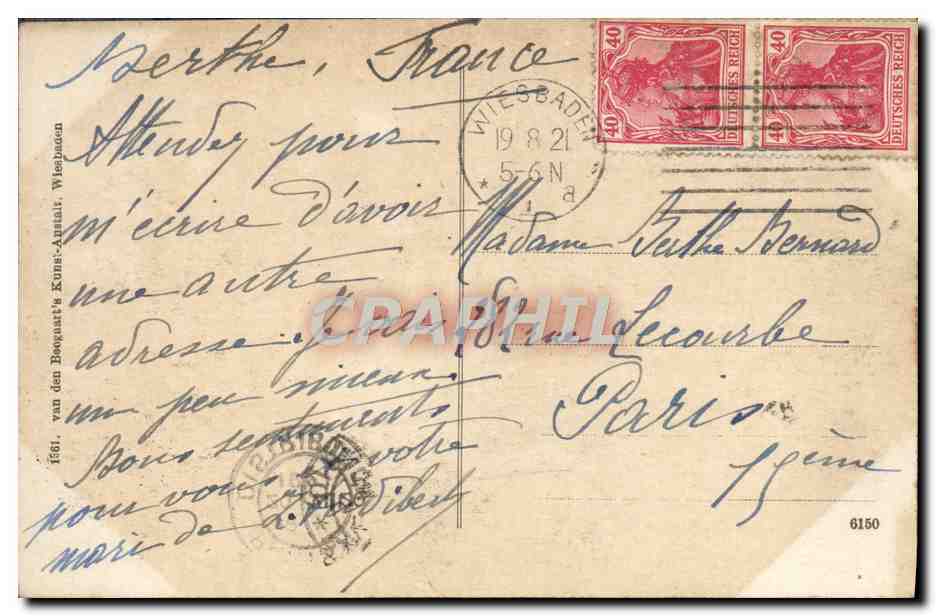 Berthe, France
Attendez pour
m'écrire d'avoir
une autre
adresse. Je vais
un peu mieux.
Bons sentiments
pour vous votre
mari de
Madame Berthe Bernard
rue Lecourbe
Paris
15ème
WIESBADEN
19 8 21
5-6 N
* 1 a
40 DEUTSCHES REICH 40
40 DEUTSCHES REICH 40
1561. van den Boogaart's Kunst-Anstalt, Wiesbaden
6150
CPAPHIL